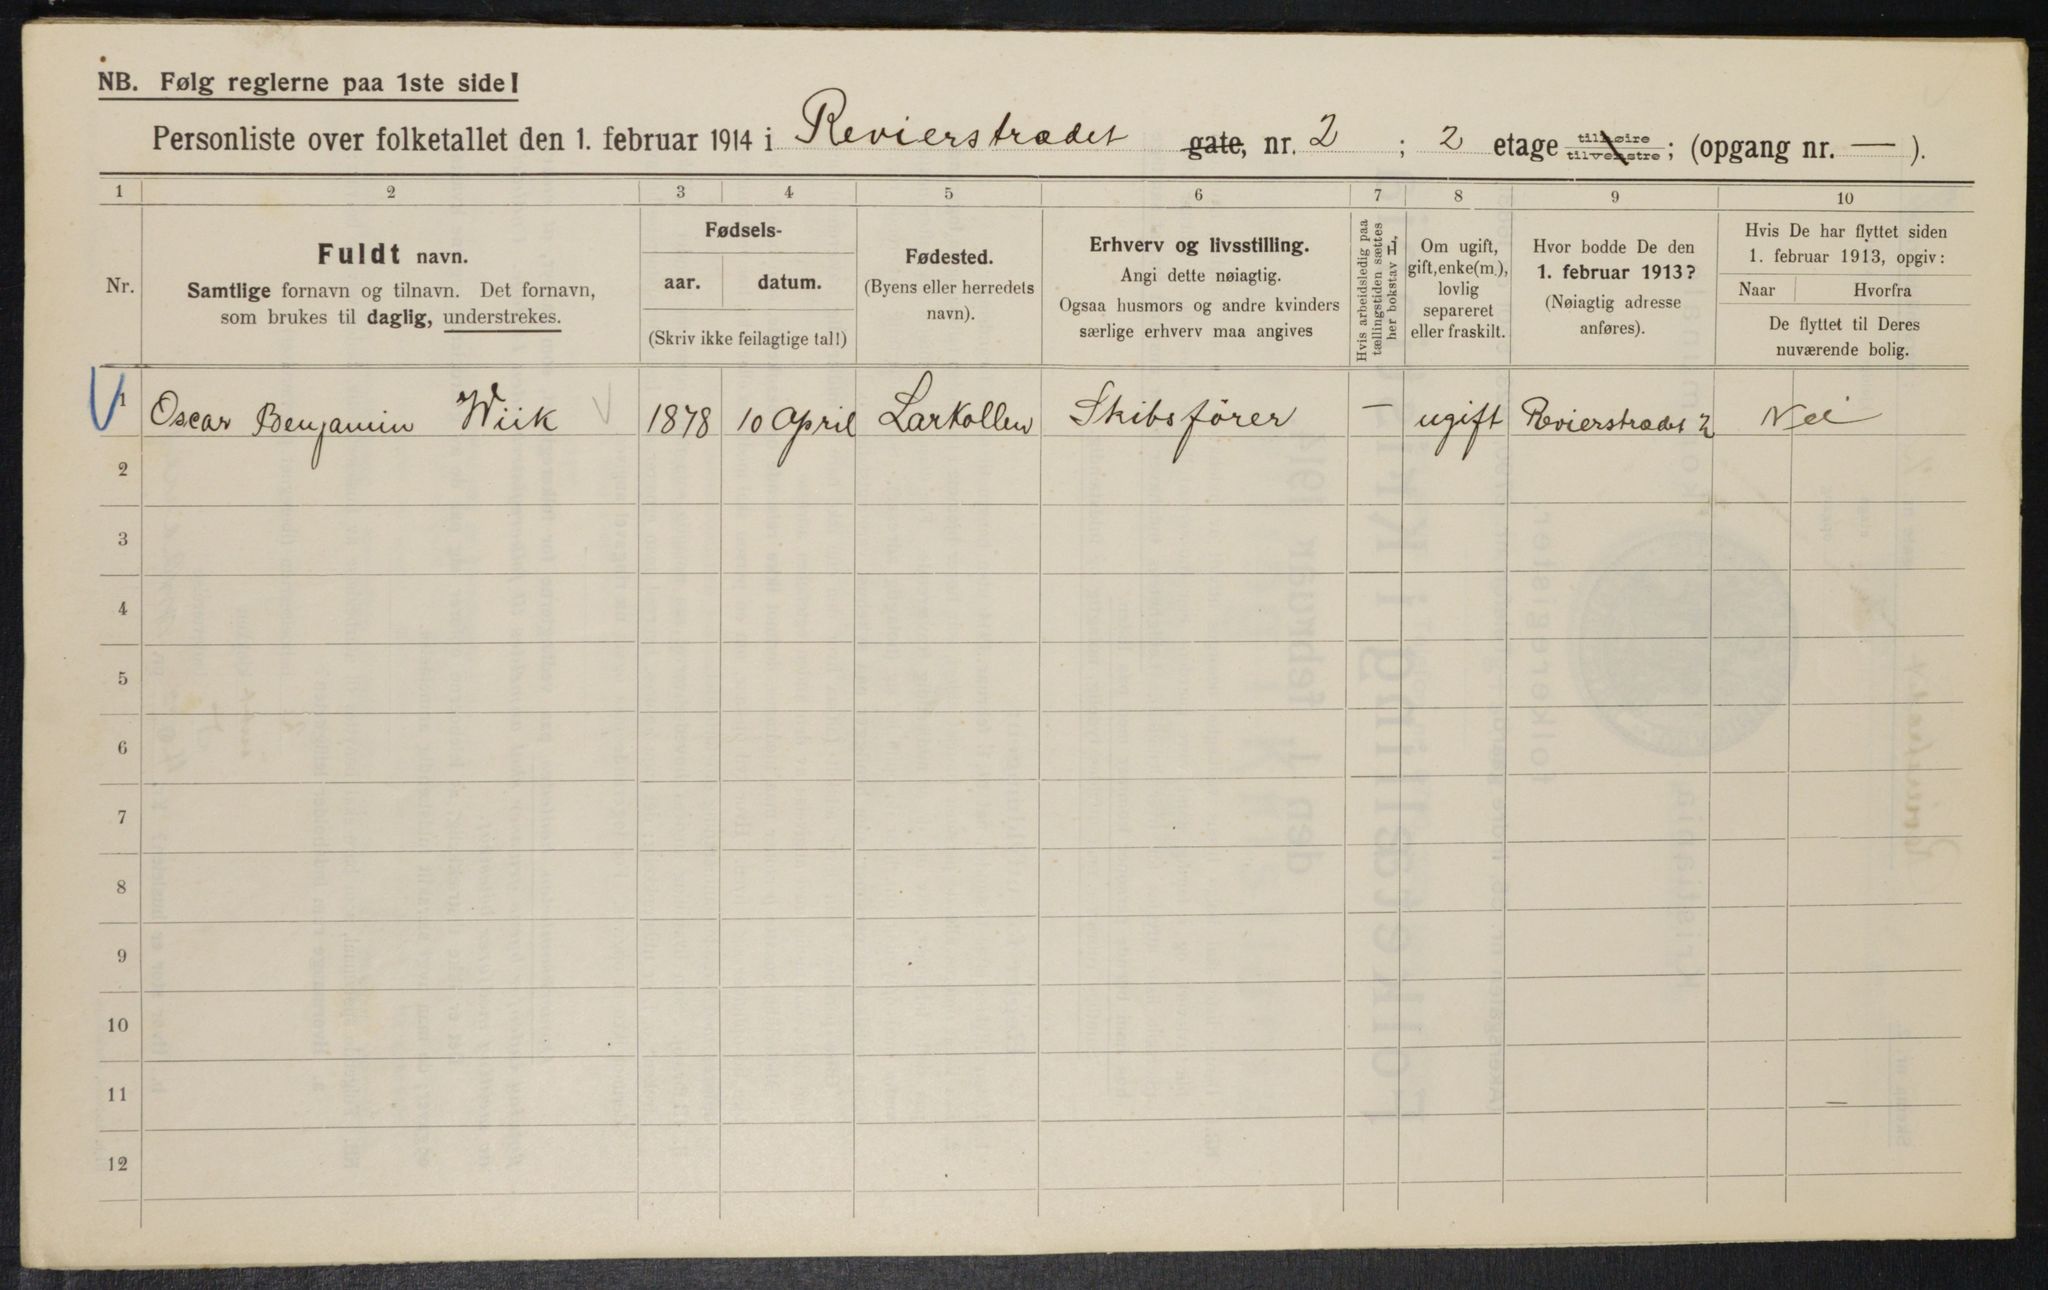 NB. Følg reglerne paa 1ste side!
Personliste over folketallet den 1. februar 1914 i Revierstrædet gate, nr. 2 ; 2 etage tilhøire tilvenstre ; (opgang nr. — ).
1 2 3 4 5 6 7 8 9 10
Nr.
Fuldt navn.
Samtlige fornavn og tilnavn. Det fornavn,
som brukes til daglig, understrekes.
Fødsels-
aar. datum.
(Skriv ikke feilagtige tal!)
Fødested.
(Byens eller herredets
navn).
Erhverv og livsstilling.
Angi dette nøiagtig.
Ogsaa husmors og andre kvinders
særlige erhverv maa angives
Hvis arbeidsledig paa
tællingstiden sættes
her bokstav L,
Om ugift,
gift, enke(m.),
lovlig
separeret
eller fraskilt.
Hvor bodde De den
1. februar 1913?
(Nøiagtig adresse
anføres).
Hvis De har flyttet siden
1. februar 1913, opgiv:
Naar Hvorfra
De flyttet til Deres
nuværende bolig.
1 Oscar Benjamin Wiik 1878 10 April Larkollen Skibsfører — ugift Revierstrædet 2 Nei
2
3
4
5
6
7
8
9
10
11
12